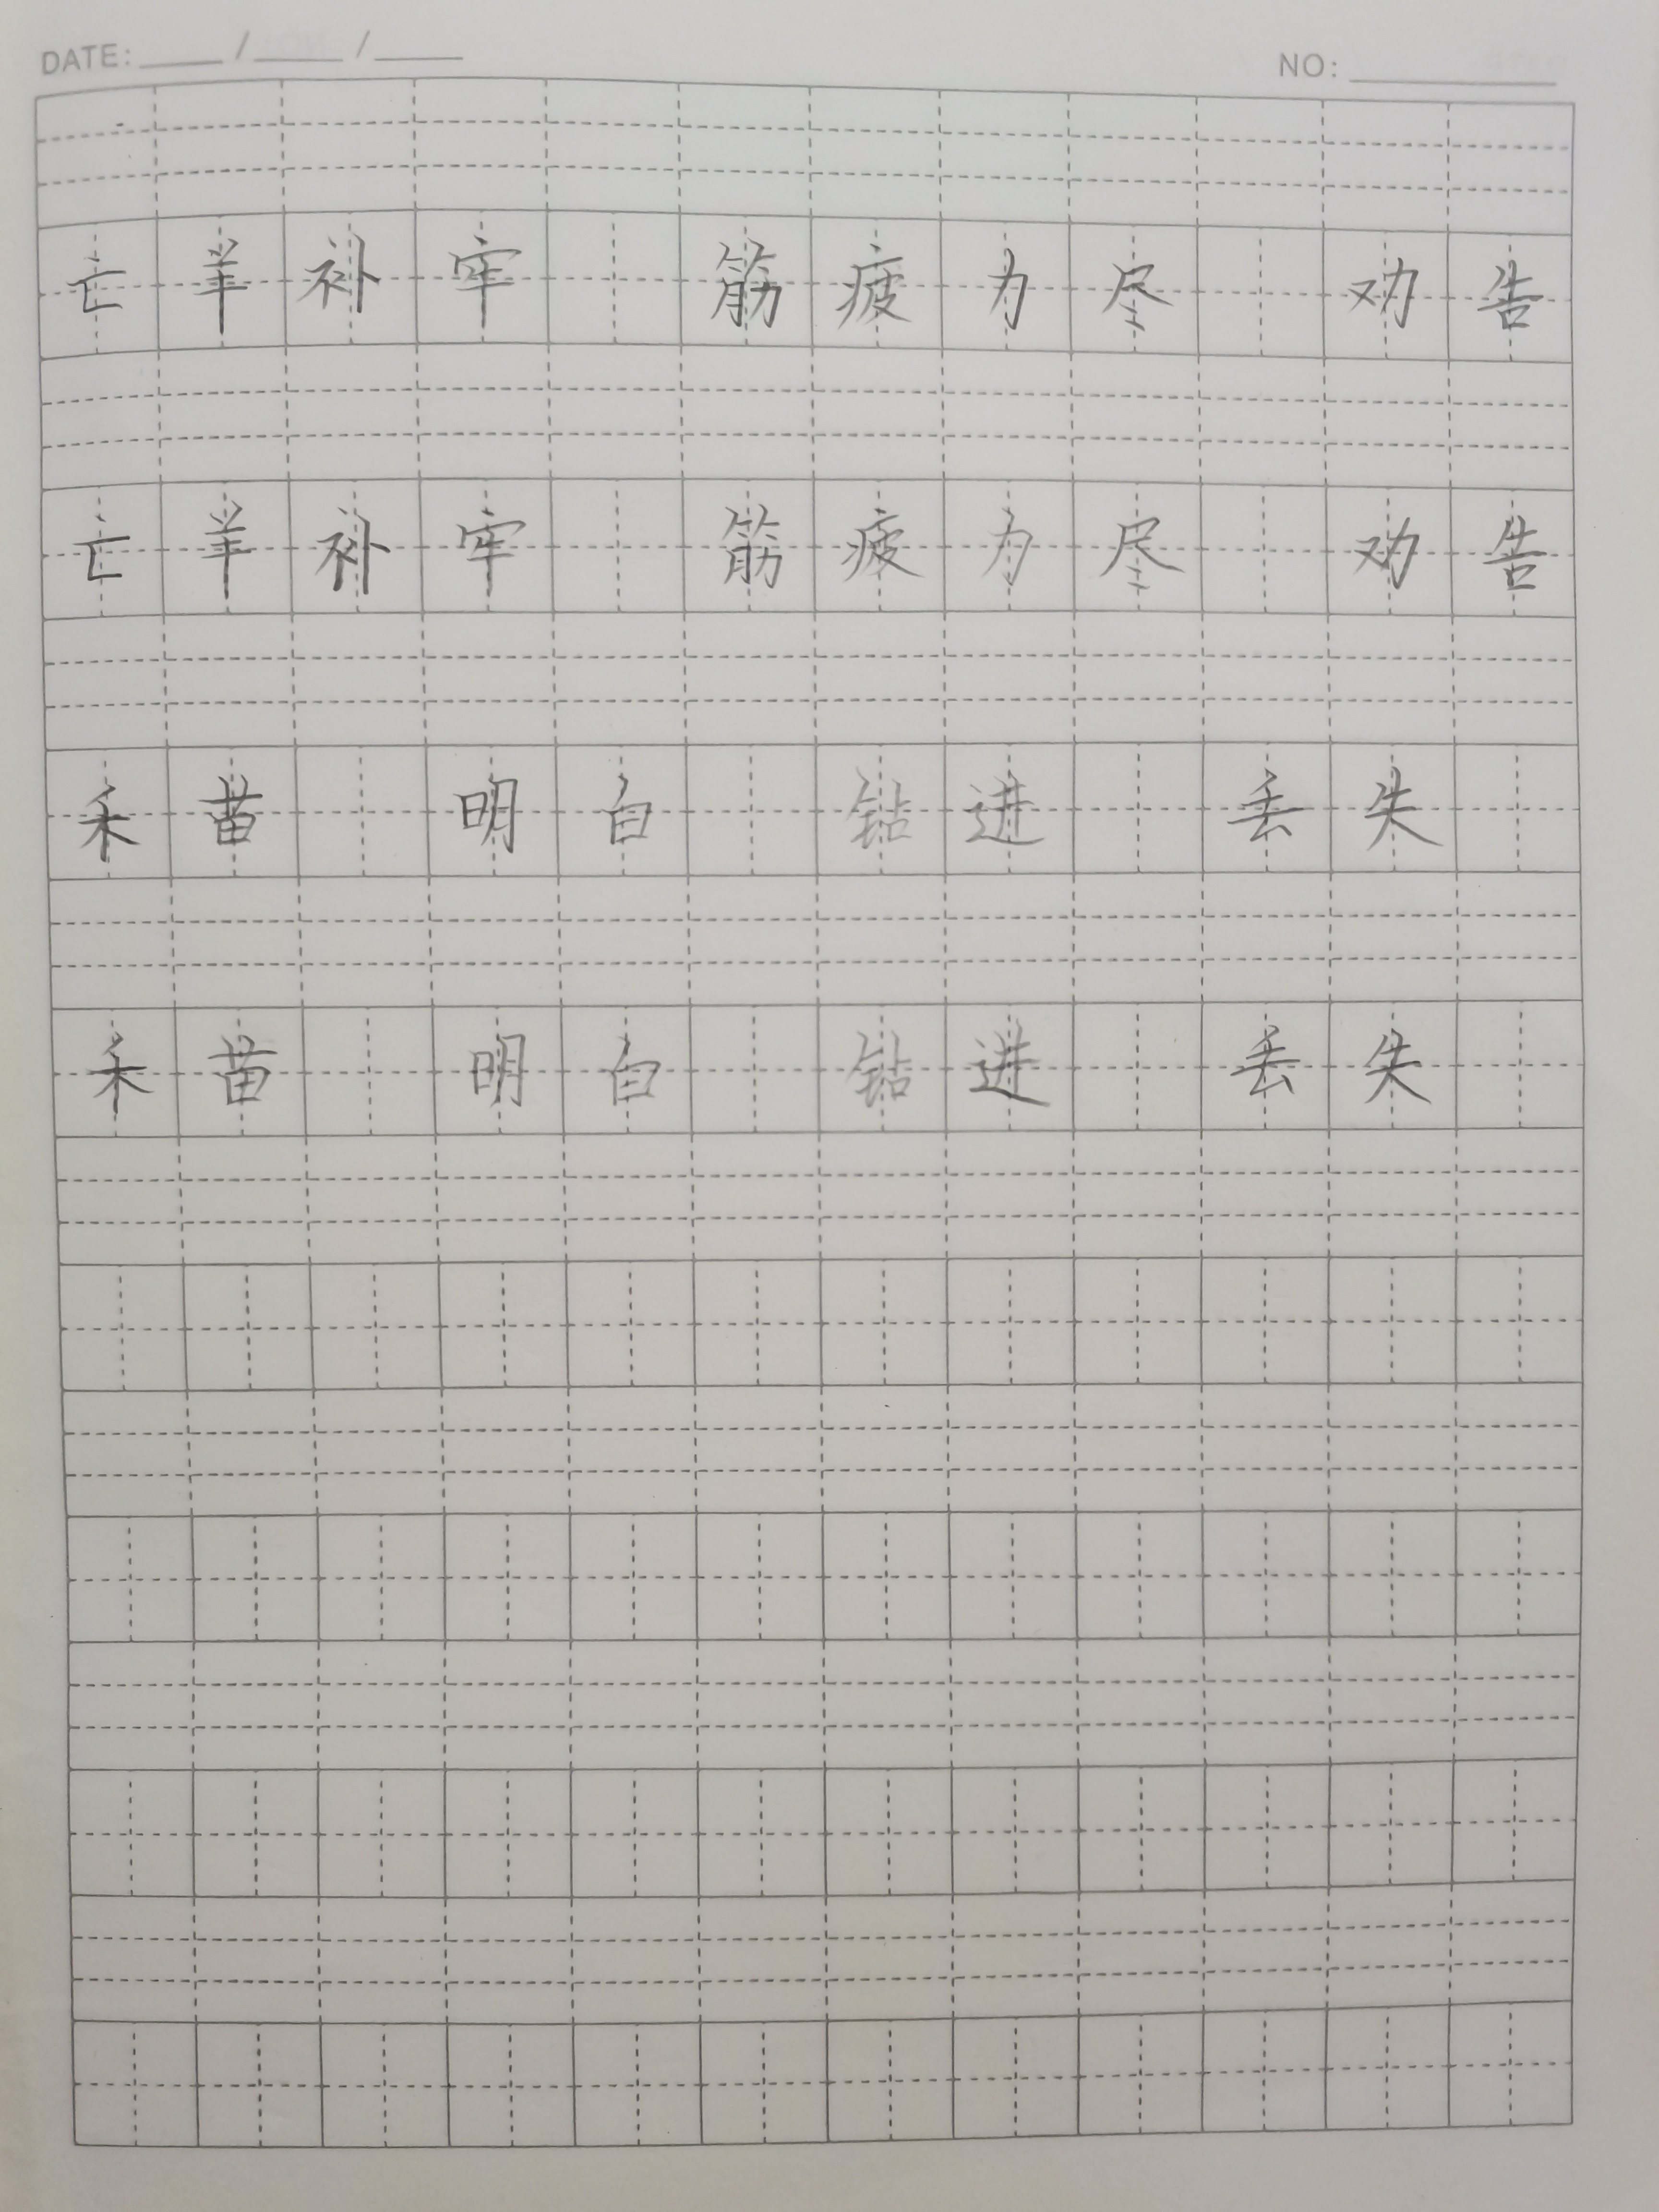 DATE: ____ / ____ / ____ NO: ________
亡羊补牢 筋疲力尽 劝告
亡羊补牢 筋疲力尽 劝告
禾苗 明白 钻进 丢失
禾苗 明白 钻进 丢失